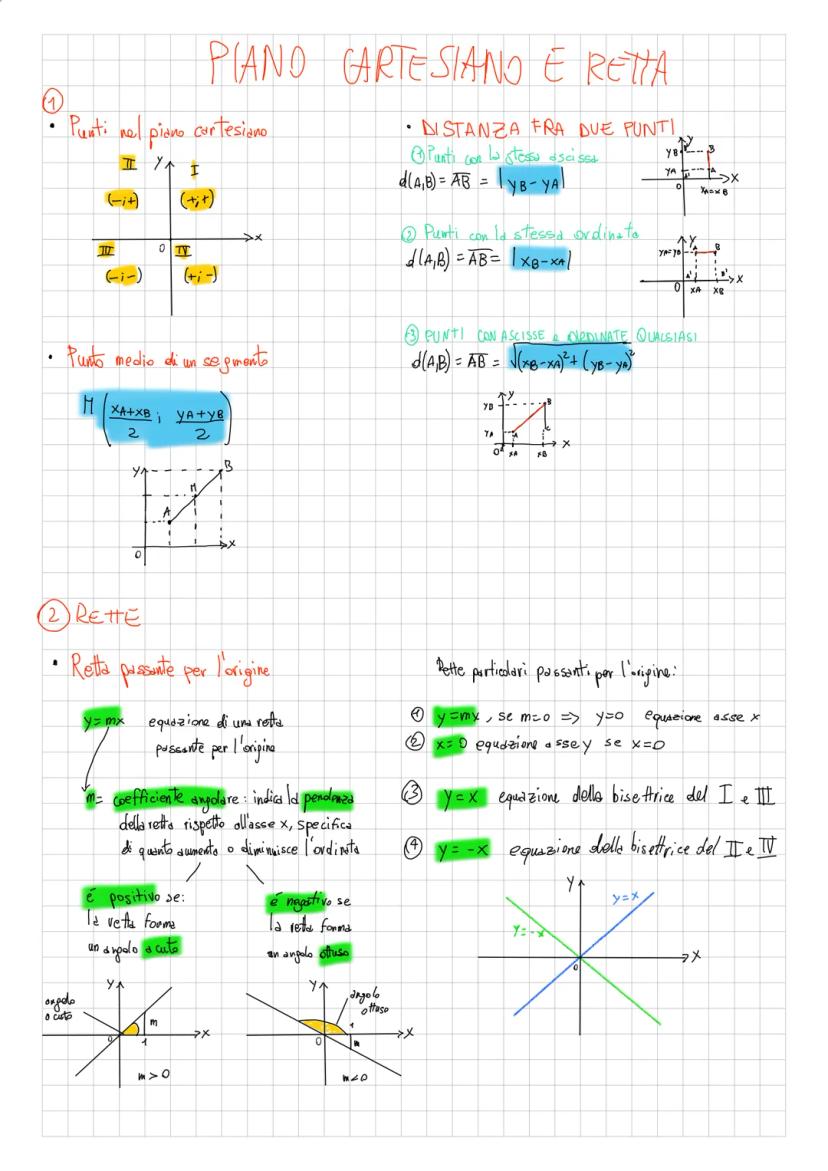 PIANO CARTESIANO E RETTA
1
• Punti nel piano cartesiano
II y I
(-;+) (+;+)
x
III 0 IV
(-;-) (+;-)
• Punto medio di un segmento
M (xA+xB/2 ; yA+yB/2)
y B
M
A
x
0
• DISTANZA FRA DUE PUNTI
① Punti con la stessa ascissa
d(A,B) = AB = |yB - yA|
y
yB B
yA A
0 x
xA=xB
② Punti con la stessa ordinata
d(A,B) = AB = |xB - xA|
y
yA=yB A B
A' B' x
0 xA xB
③ PUNTI CON ASCISSE e ORDINATE QUALSIASI
d(A,B) = AB = √(xB-xA)²+(yB-yA)²
y
yB B
yA A C
0 xA xB x
② RETTE
• Retta passante per l'origine
y=mx equazione di una retta
passante per l'origine
m= coefficiente angolare: indica la pendenza
della retta rispetto all'asse x, specifica
di quanto aumenta o diminuisce l'ordinata
é positivo se:
la retta forma
un angolo acuto
é negativo se
la retta forma
un angolo ottuso
angolo
acuto
y
m
0 1 x
m>0
y
angolo
ottuso
1
0 m x
m<0
Rette particolari passanti per l'origine:
① y=mx, se m=0 => y=0 equazione asse x
② x=0 equazione asse y se x=0
③ y=x equazione della bisettrice del I e III
④ y=-x equazione della bisettrice del II e IV
y
y=x
y=-x
0 x